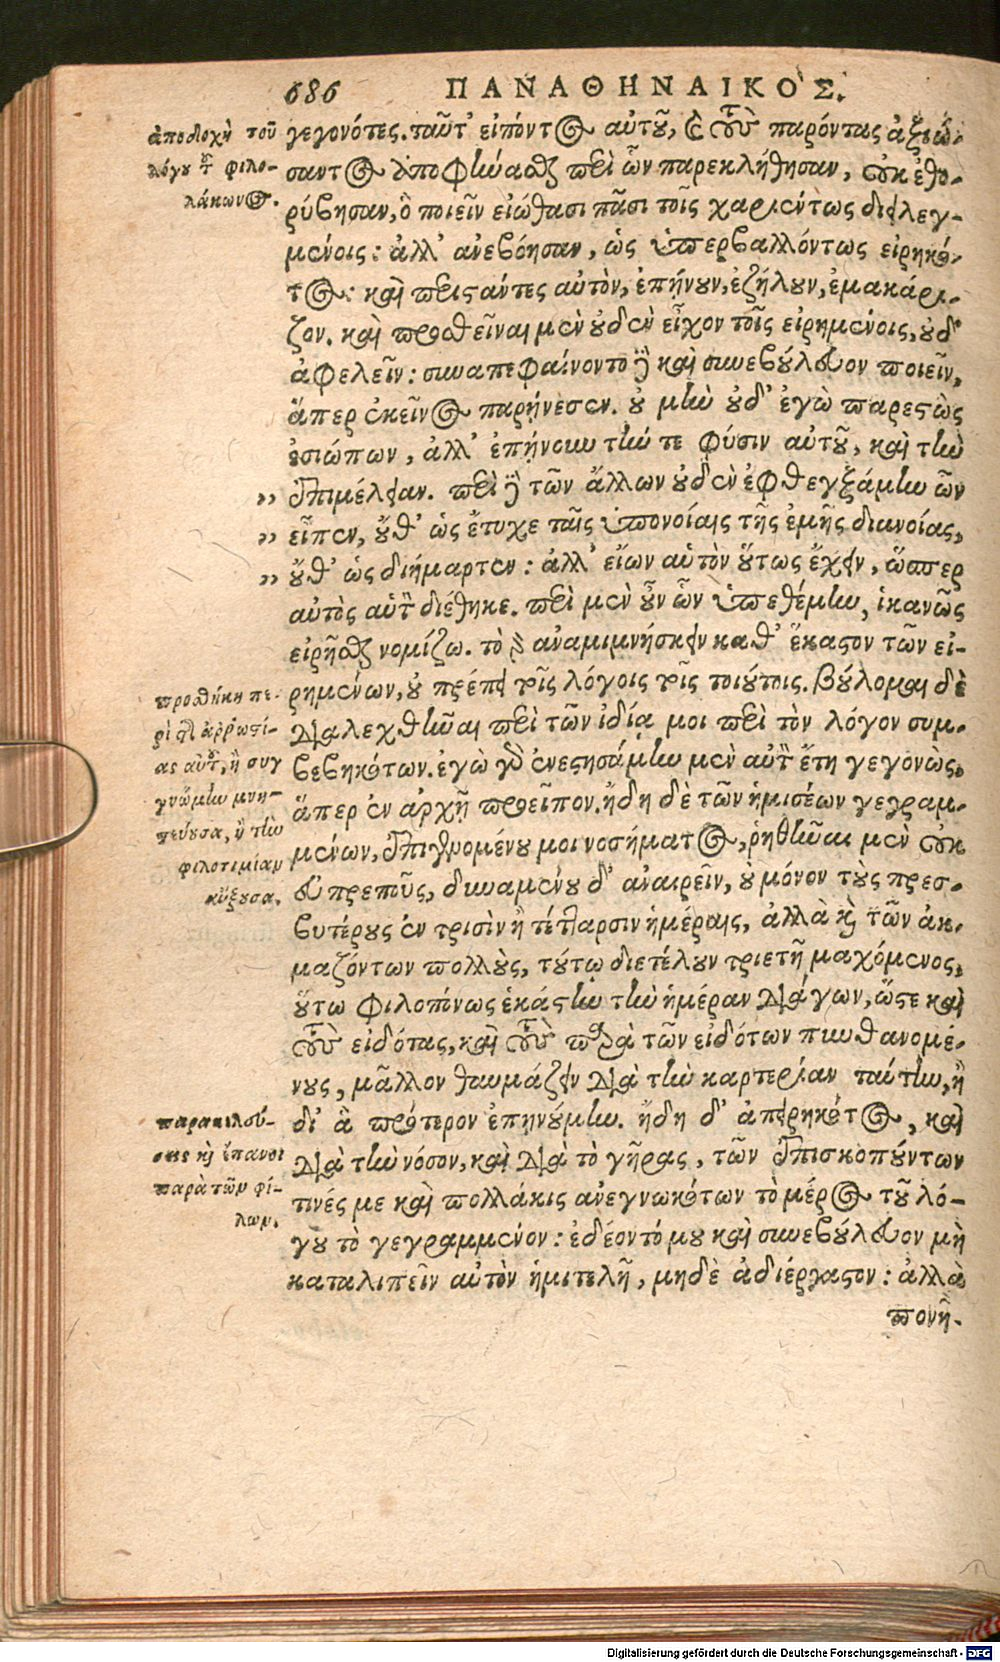 686 ΠΑΝΑΘΗΝΑΙΚΟΣ.
ἀποδοχὴ τοῦ
λόγου τοῦ φιλο-
λάκωνος.
γεγονότες. ταῦτ' εἰπόντος αὐτοῦ, καὶ τοὺς παρόντας ἀξιώ-
σαντος ἀποφήνασθαι περὶ ὧν παρεκλήθησαν, οὐκ ἐθο-
ρύβησαν, ὃ ποιεῖν εἰώθασι πᾶσι τοῖς χαριέντως διειλεγ-
μένοις: ἀλλ' ἀνεβόησαν, ὡς ὑπερβαλλόντως εἰρηκό-
τος: καὶ περιστάντες αὐτὸν, ἐπῄνουν, ἐζήλουν, ἐμακάρι-
ζον. καὶ προσθεῖναι μὲν οὐδὲν εἶχον τοῖς εἰρημένοις, οὐδ'
ἀφελεῖν: συναπεφαίνοντο δὲ καὶ συνεβούλευον ποιεῖν,
ἅπερ ἐκεῖνος παρῄνεσεν. οὐ μὴν οὐδ' ἐγὼ παρεστὼς
ἐσιώπων, ἀλλ' ἐπῄνουν τήν τε φύσιν αὐτοῦ, καὶ τὴν
„ ἐπιμέλειαν. περὶ δὲ τῶν ἄλλων οὐδὲν ἐφθεγξάμην ὧν
„ εἶπεν, οὔθ' ὡς ἔτυχε ταῖς ὑπονοίαις τῆς ἐμῆς διανοίας,
„ οὔθ' ὡς διήμαρτεν: ἀλλ' εἴων αὐτὸν οὕτως ἔχειν, ὥσπερ
αὐτὸς αὑτὸν διέθηκε. περὶ μὲν οὖν ὧν ὑπεθέμην, ἱκανῶς
εἰρῆσθαι νομίζω. τὸ γὰρ ἀναμιμνήσκειν καθ' ἕκαστον τῶν εἰ-
ρημένων, οὐ πρέπει τοῖς λόγοις τοῖς τοιούτοις. βούλομαι δὲ
διαλεχθῆναι περὶ τῶν ἰδίᾳ μοι περὶ τὸν λόγον συμ-
βεβηκότων. ἐγὼ γὰρ ἐνεστησάμην μὲν αὐτὸν ἔτη γεγονὼς,
ἅπερ ἐν ἀρχῇ προεῖπον. ἤδη δὲ τῶν ἡμισέων γεγραμ-
μένων, ἐπιγενομένου μοι νοσήματος, ῥηθῆναι μὲν οὐκ
εὐπρεποῦς, δυναμένου δ' ἀναιρεῖν, οὐ μόνον τοὺς πρεσ-
βυτέρους ἐν τρισὶν ἢ τέτταρσιν ἡμέραις, ἀλλὰ καὶ τῶν ἀκ-
μαζόντων πολλοὺς, τούτῳ διετέλουν τριετῆ μαχόμενος,
οὕτω φιλοπόνως ἑκάστην τὴν ἡμέραν διάγων, ὥστε καὶ
τοὺς εἰδότας, καὶ τοὺς παρὰ τῶν εἰδότων πυνθανομέ-
νους, μᾶλλον θαυμάζειν διὰ τὴν καρτερίαν ταύτην, ἢ
δι' ἃ πρότερον ἐπῃνούμην. ἤδη δ' ἀπειρηκότος, καὶ
διὰ τὴν νόσον, καὶ διὰ τὸ γῆρας, τῶν ἐπισκοπούντων
τινές με καὶ πολλάκις ἀνεγνωκότων τὸ μέρος τοῦ λό-
γου τὸ γεγραμμένον: ἐδέοντό μου καὶ συνεβούλευον μὴ
καταλιπεῖν αὐτὸν ἡμιτελῆ, μηδὲ ἀδιέργαστον: ἀλλὰ
πονῆ-
προσθήκη πε-
ρὶ τῆς ἀρρωστί-
ας αὐτοῦ, ἢ συγ
γνώμην μνη-
στεύουσα, ἢ τὴν
φιλοτιμίαν
αὔξουσα.
παρακελεύ-
σεις καὶ ἔπαινοι
παρὰ τῶν φί-
λων.
Digitalisierung gefördert durch die Deutsche Forschungsgemeinschaft - DFG